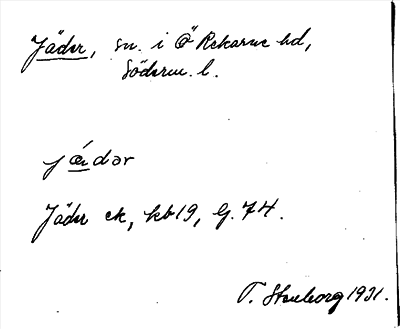 Jäder, sn. i Ö Rekarne hd,
Söderm. l.
jǽdər
Jäder ck, kb 19, G. 74.
T. Stenborg 1931.